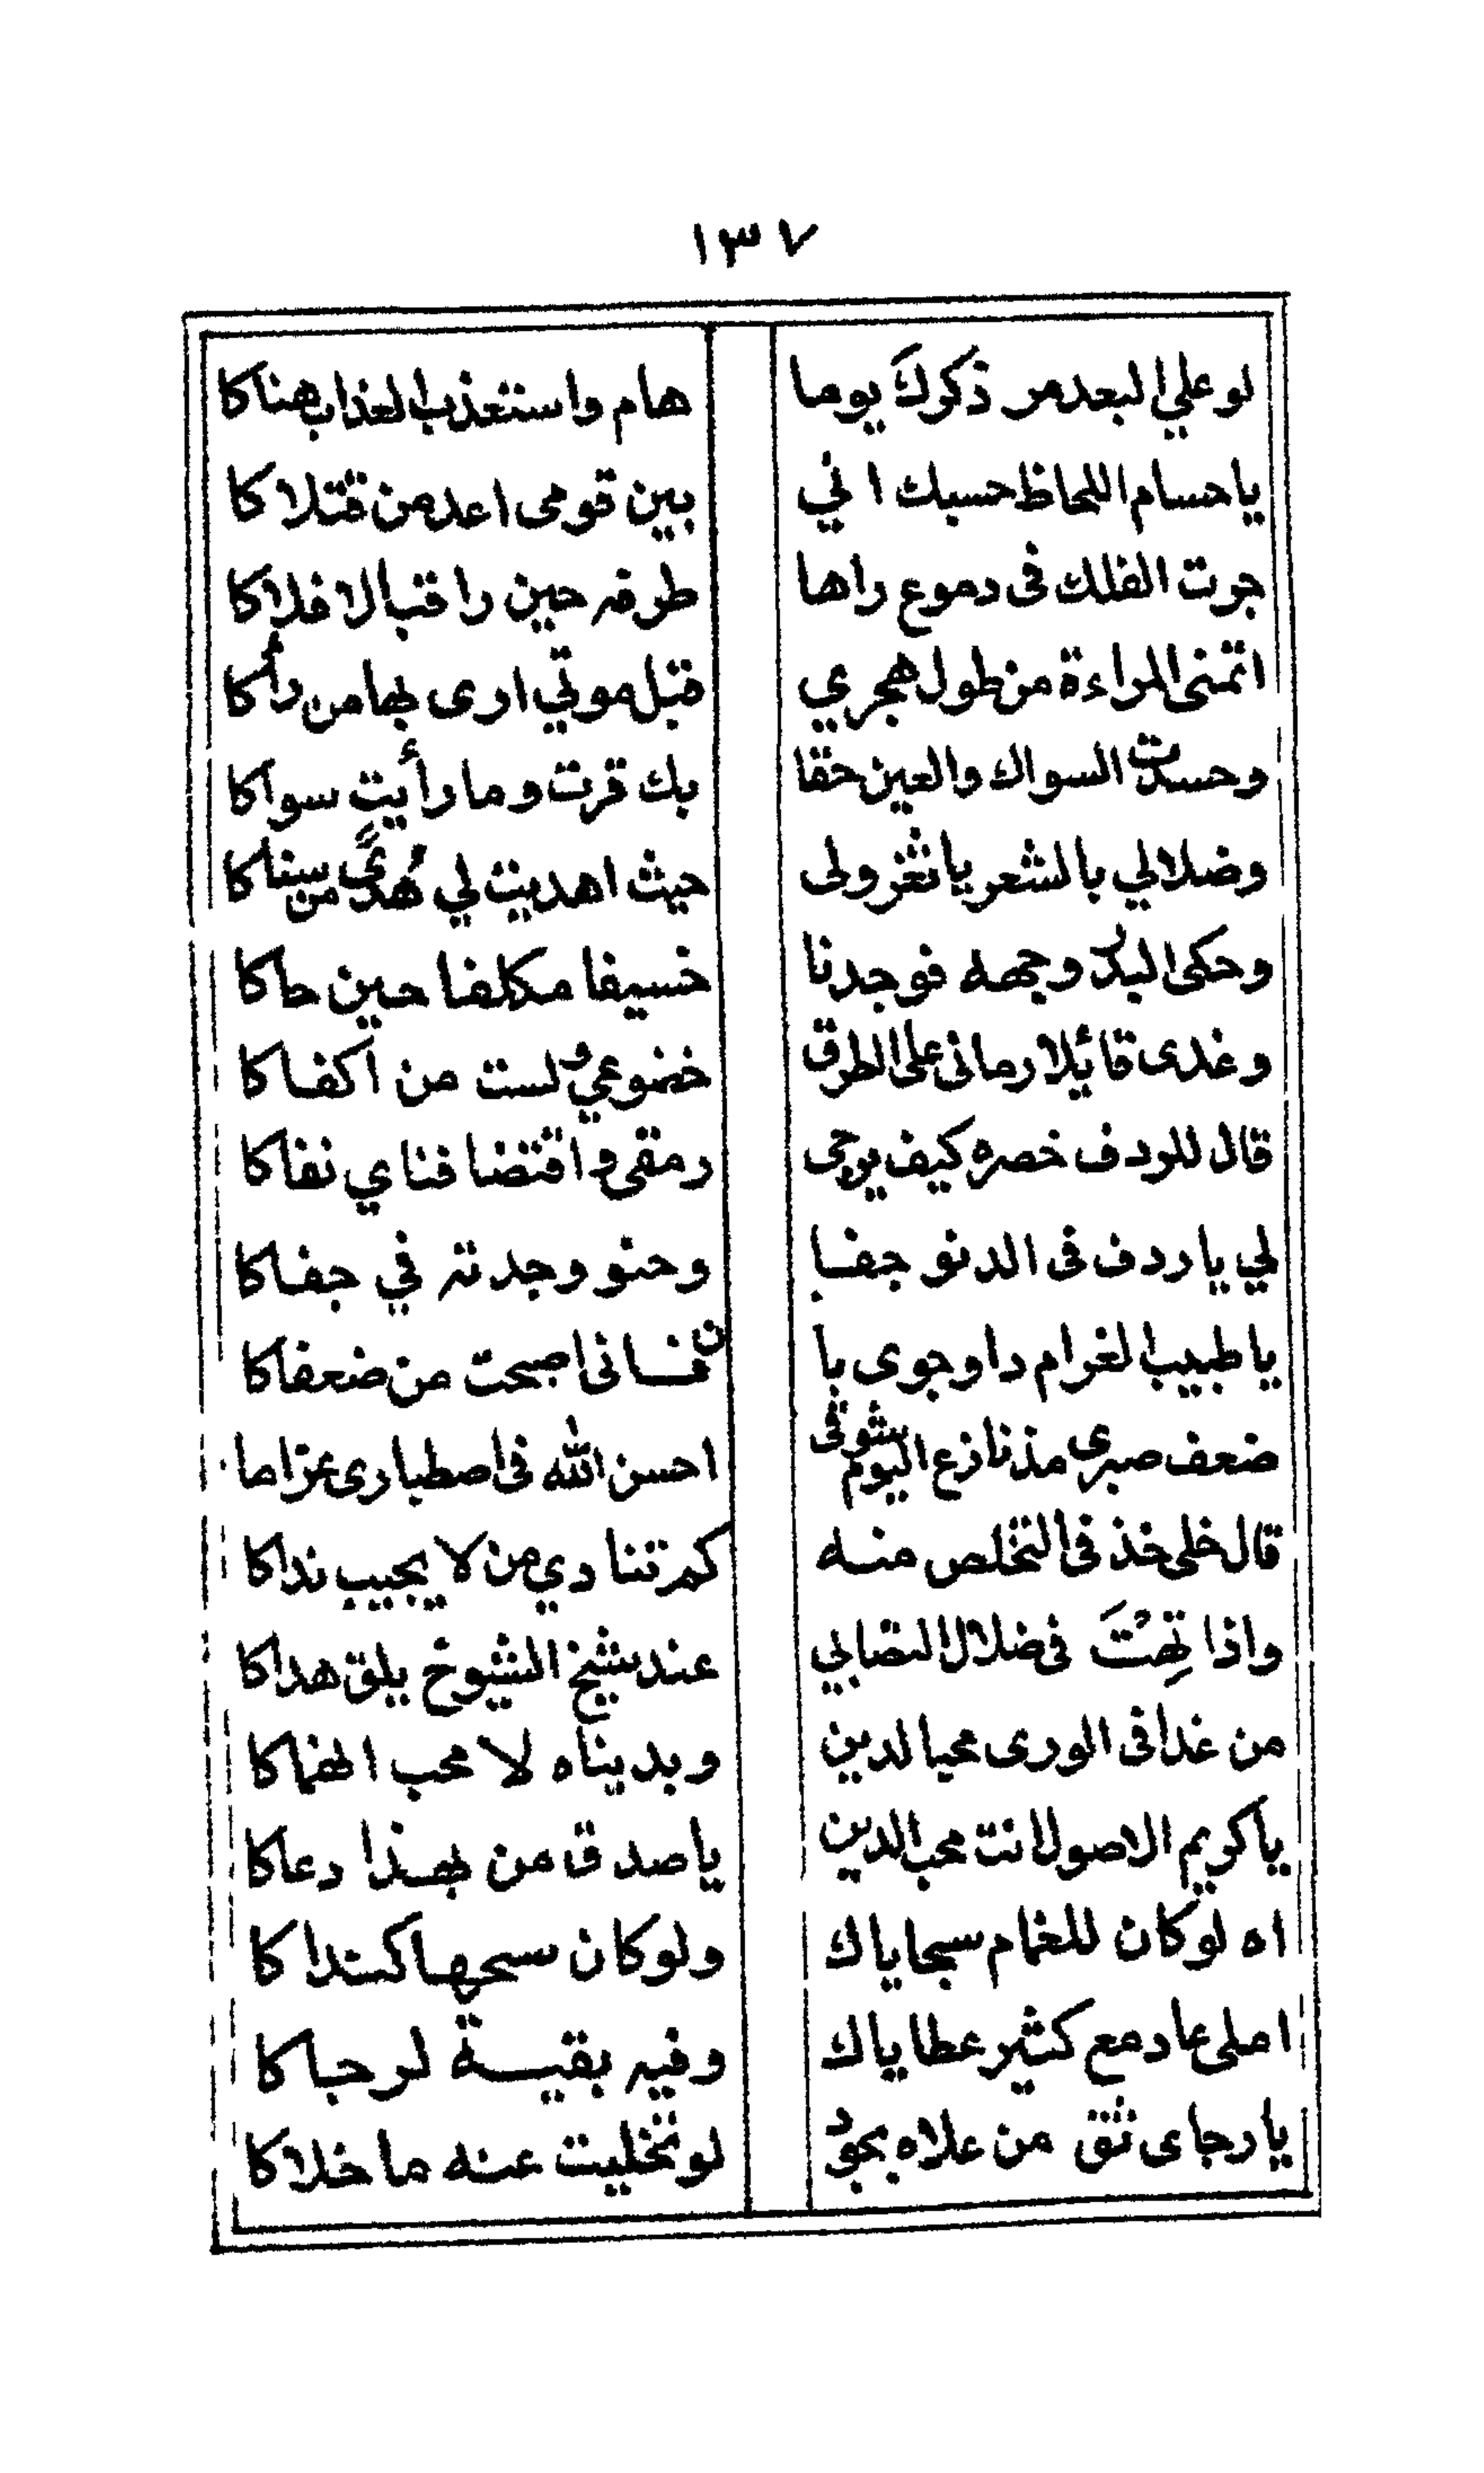 ١٣٧
لو علي البعد مر ذكركَ يوما هام واستعذب العذاب هناكا
يا حسام اللحاظ حسبك اني بين قومى اعد من قتلاكا
جرت الفلك فى دموع راها طرفه حين راقب الافلاكا
اتمنى المراءة من طول هجري قبل موتي ارى بها من رأكا
وحسدت السواك والعين حقا بك قرت وما رأيت سواكا
وضلالي بالشعر يا ثغر ولى حيث اهديت لي هُدىً من سناكا
وحكى البدر وجهه فوجدنا خسيفا مكلفا حين حاكا
وغدى قائلا رمانى على الطرق خضوعي ولست من اكفاكا
قال للردف خصره كيف يرجى رمقى واقتضا فناي نفاكا
لي يا ردف فى الدنو جفا وحنو وجدته في جفاكا
يا طبيب الغرام داو جوى با ن فسانى اصبحت من ضعفاكا
ضعف صبرى مذ نازع اليوم شوقى احسن الله فى اصطبارى عزاما
قال خلى خذ فى التخلص منه كم تنادي من لا يجيب نداكا
واذا تِهْتَ فى ضلال التصابي عند شيخ الشيوخ يلق هداكا
من غدا فى الورى محيا لدين وبديناه لا محب انهماكا
يا كريم الاصول انت محب الدين يا صدق من بهذا دعاكا
اه لو كان للغمام سجاياك ولو كان سمحها كنداكا
املى عاد مع كثير عطاياك وفيه بقية لرجاكا
يا رجاى ثق من علاه بجود لو تخليت عنه ما خلاكا